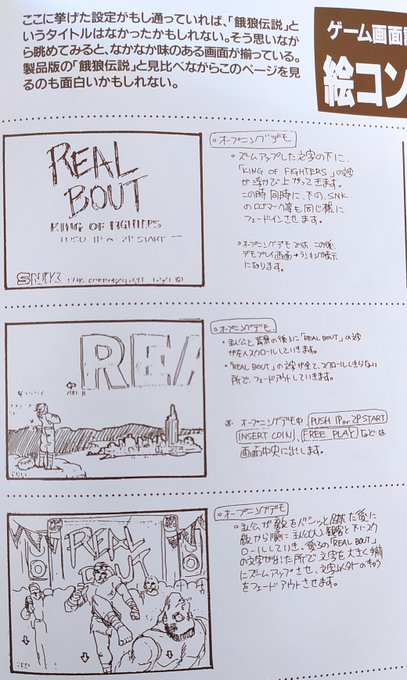 ここに挙げた設定がもし通っていれば、「餓狼伝説」と
いうタイトルはなかったかもしれない。そう思いなが
ら眺めてみると、なかなか味のある画面が揃っている。
製品版の「餓狼伝説」と見比べながらこのページを見
るのも面白いかもしれない。
ゲーム画面
絵コン
REAL
BOUT
KING OF FIGHTERS
PUSH 1P or 2P START
SNK
オープニングデモ
・ズームアップした文字の下に、
「KING OF FIGHTERS」の文字
が浮かび上がってきます。
この時同時に、下の、SNK
のロゴマーク等も同じ様に
フェードインさせます。
オープニングデモでは、この後、
デモプレイ画面→ランキング表示
になります。
REA
オープニングデモ
・主人公と背景の後ろに「REAL BOUT」の文字
が左へスクロールしていきます。
・「REAL BOUT」の文字が全て、スクロールしきらない
所で、フェードアウトしていきます。
※ オープニングデモ中 PUSH 1P or 2P START
INSERT COIN, FREE PLAY などは
画面中央に出します。
REAL
BOUT
オープニングデモ
・主人公が敵をバシッと倒した後に
敵から順に主人公、観客と下にスク
ロールしていき、後ろの「REAL BOUT」
の文字が出た所で文字を大きく手前
にズームアップさせ、文字以外のキャラ
をフェードアウトさせます。